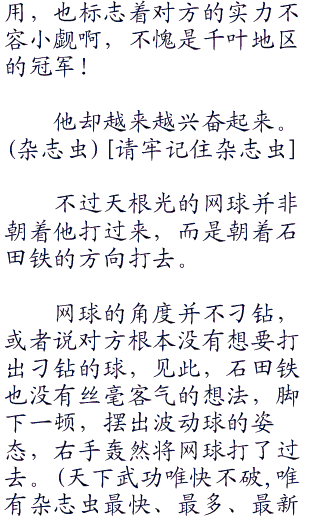 用，也标志着对方的实力不
容小觑啊，不愧是千叶地区
的冠军！
他却越来越兴奋起来。
(杂志虫)[请牢记住杂志虫]
不过天根光的网球并非
朝着他打过来，而是朝着石
田铁的方向打去。
网球的角度并不刁钻，
或者说对方根本没有想要打
出刁钻的球，见此，石田铁
也没有丝毫客气的想法，脚
下一顿，摆出波动球的姿
态，右手轰然将网球打了过
去。(天下武功唯快不破,唯
有杂志虫最快、最多、最新